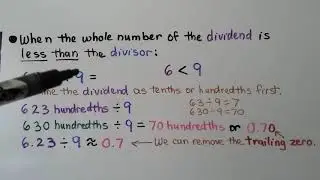 When the whole number of the dividend is
less than the divisor:
9 = 6 < 9
the dividend as tenths or hundredths first.
623 hundredths ÷ 9 63 ÷ 9 = 7
630 ÷ 9 = 70
630 hundredths ÷ 9 = 70 hundredths or 0.70
6.23 ÷ 9 ≈ 0.7 We can remove the trailing zero.